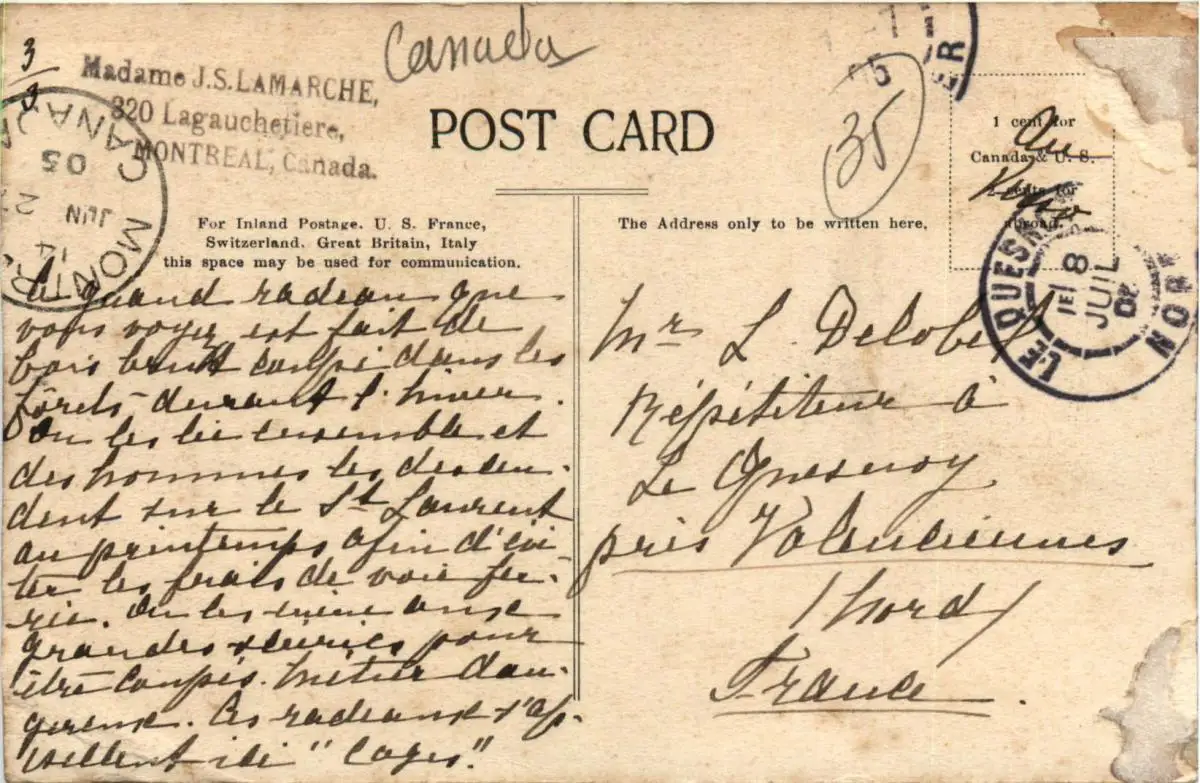 Canada
3/3
Madame J.S. LAMARCHE,
320 Lagauchetiere,
MONTREAL, Canada.
POST CARD
35
1 cent for
Canada & U. S.
2 cents for
abroad.
Au
Verso
For Inland Postage. U. S. France,
Switzerland. Great Britain, Italy
this space may be used for communication.
The Address only to be written here.
MONTR
CANADA
JUN
05
LE QUESN
NOR
1E
8
JUIL
05
Ce grand radeau que
vous voyez est fait de
bois brut coupé dans les
fôrets durant l'hiver.
On les lie ensemble et
des hommes les descen-
dent sur le St Laurent
au printemps afin d'évi-
ter les frais de voie fer-
rée. On les mène aux
grandes scieries pour
être coupés. Métier dan-
gereux. Ces radeaux s'ap-
pellent ici "cages".
Mr L. Delobel
Répétiteur à
Le Quesnoy
près Valenciennes
(Nord)
France.